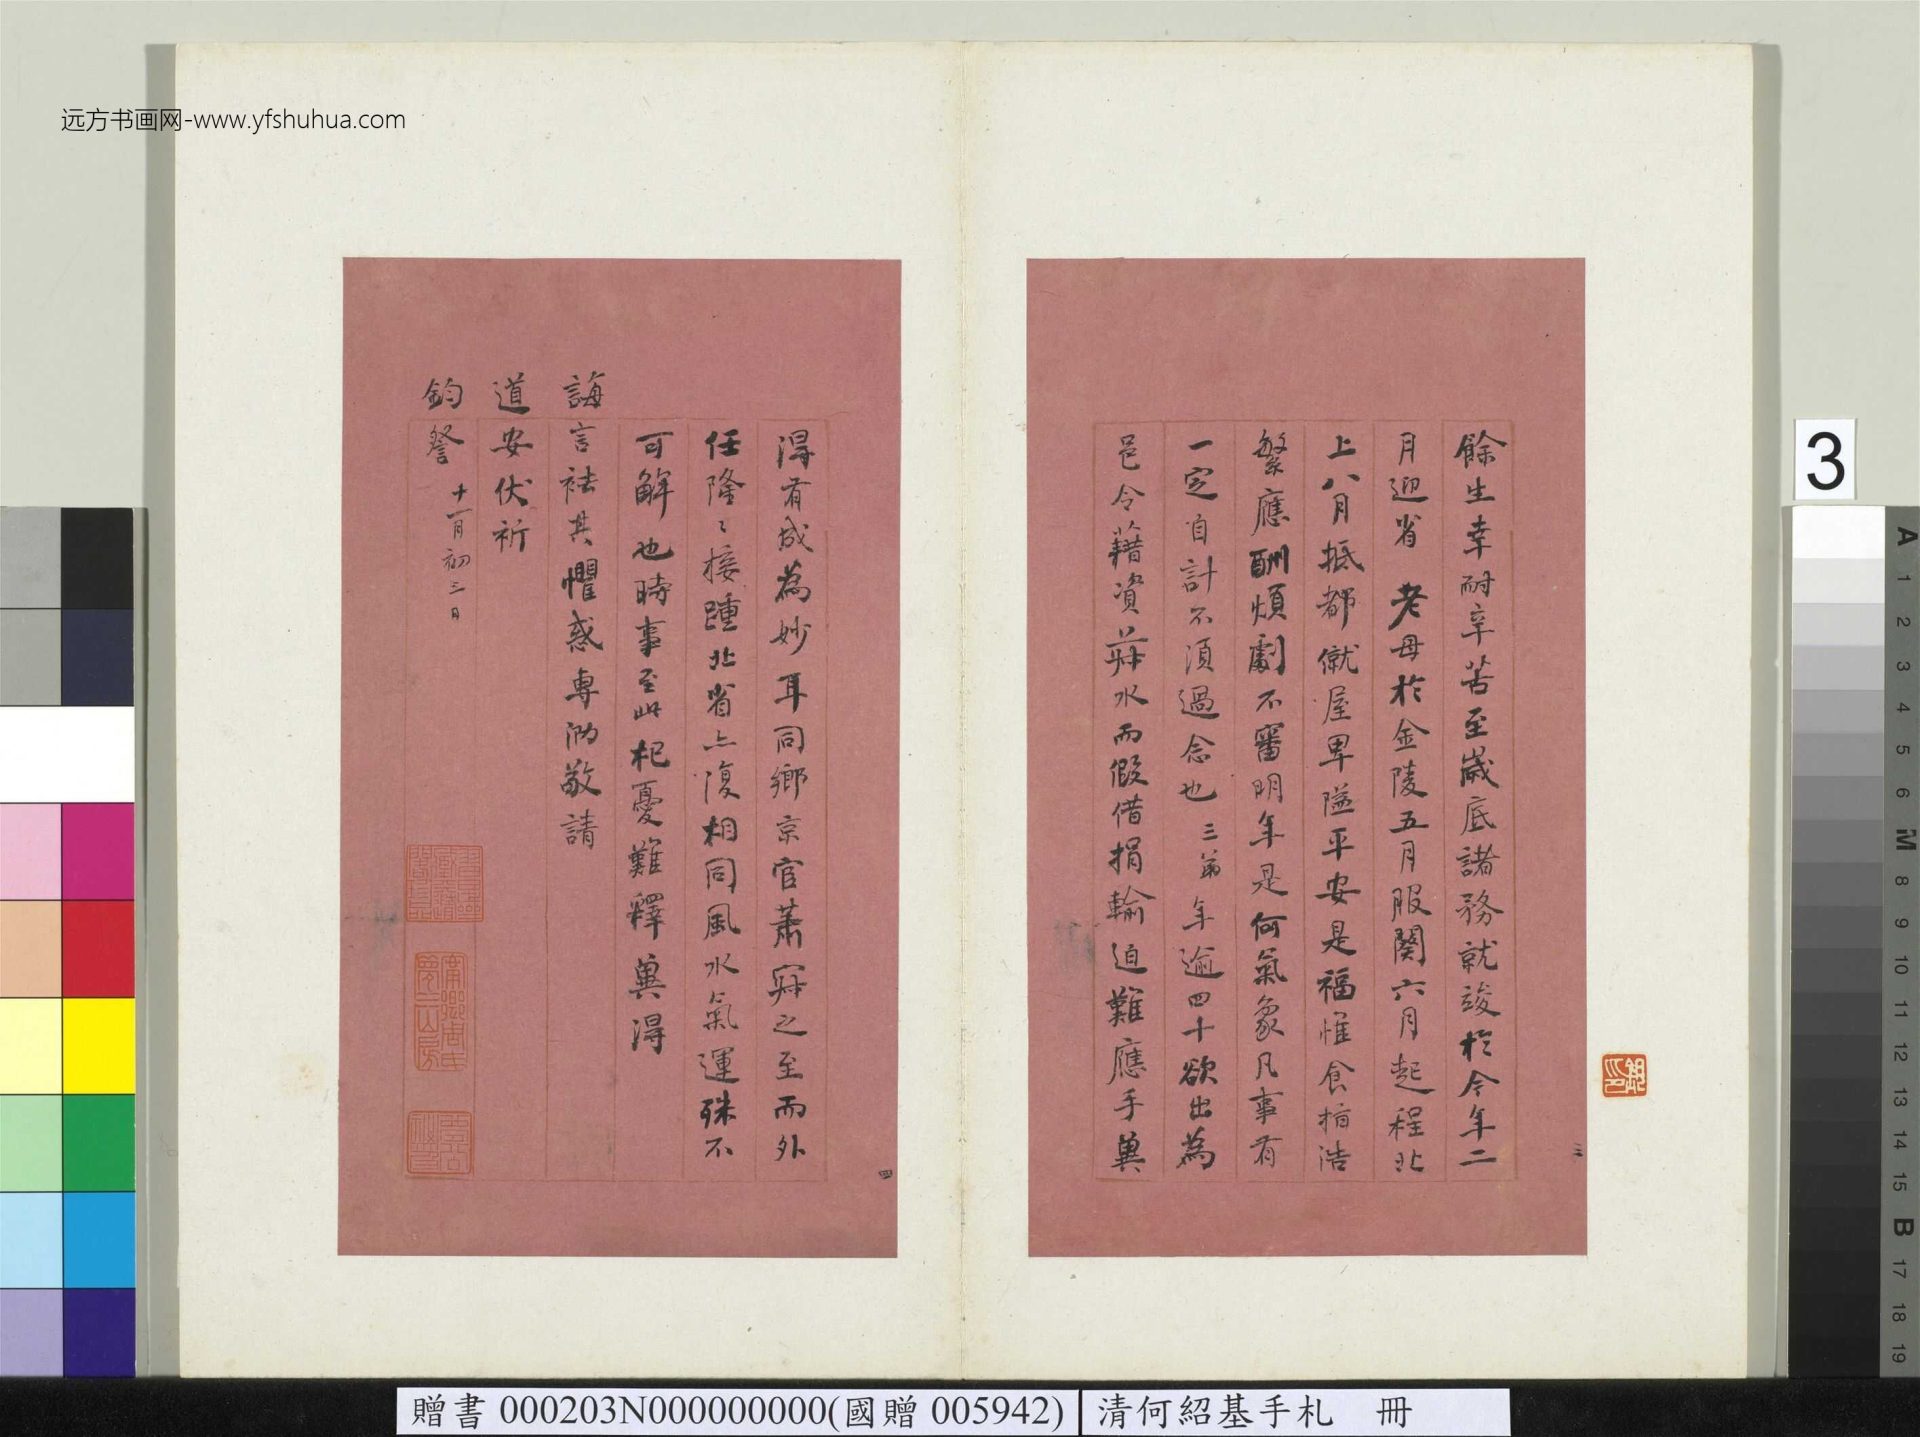 远方书画网-www.yfshuhua.com
餘生幸耐辛苦至歲底諸務就竣於今年二
月迎省 老母於金陵五月服闋六月起程北
上八月抵都僦屋卑隘平安是福惟食指浩
繁應酬煩劇不審明年是何氣象凡事有
一定自計不須過念也三弟年逾四十欲出為
邑令藉資菽水而假借捐輸迫難應手冀
三
得有成為妙耳同鄉京官蕭寂之至而外
任隆〻接踵北省亦復相同風水氣運殊不
可解也時事至此杞憂難釋冀得
誨言祛其懼惑專泐敬請
道安伏祈
鈞詧 十一月初三日
四
3
A 1 2 3 4 5 6 M 8 9 10 11 12 13 14 15 B 17 18 19
贈書 000203N000000000(國贈 005942) 清何紹基手札 冊